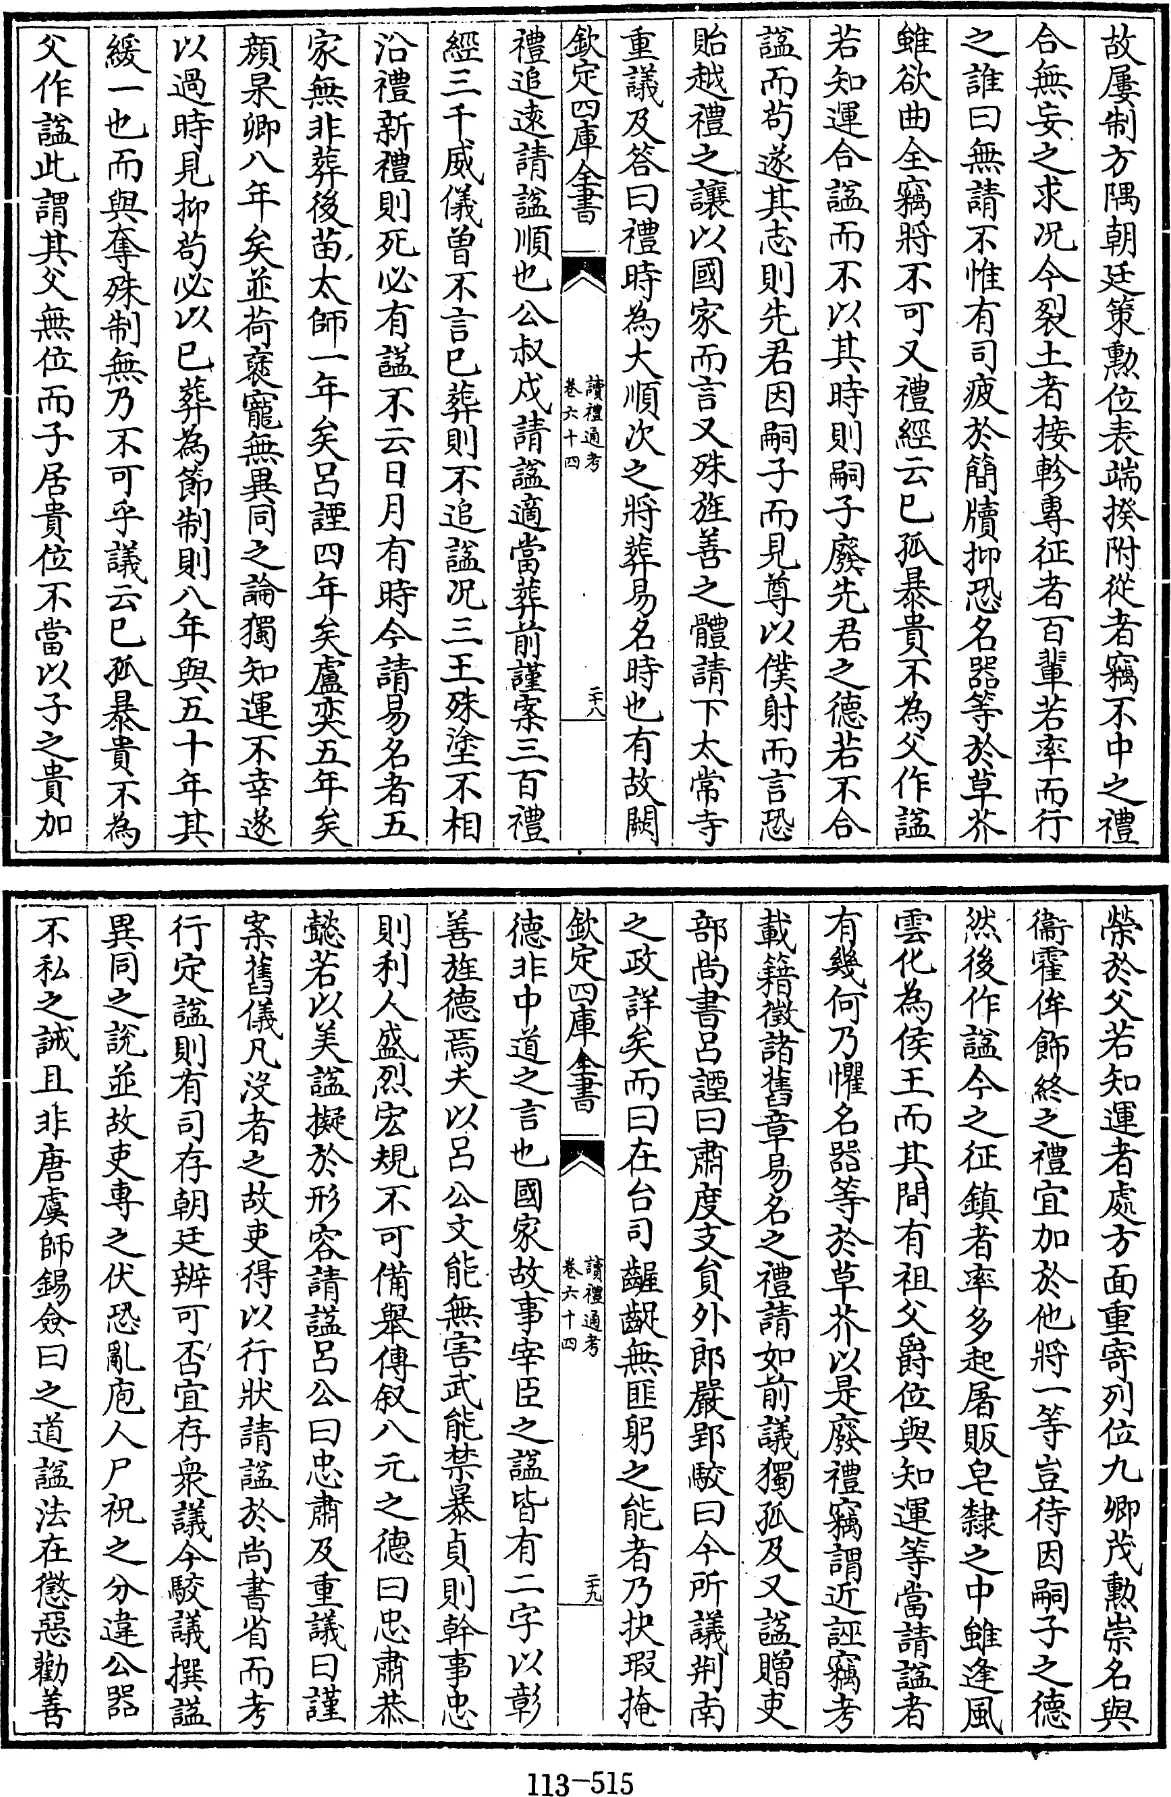 故屢制方隅朝廷策勲位表端揆附從者竊不中之禮
合無妄之求况今裂土者接軫專征者百輩若率而行
之誰曰無請不惟有司疲於簡牘抑恐名器等於草芥
雖欲曲全竊將不可又禮經云已孤暴貴不為父作諡
若知運合諡而不以其時則嗣子廢先君之德若不合
諡而茍遂其志則先君因嗣子而見尊以僕射而言恐
貽越禮之讓以國家而言又殊旌善之體請下太常寺
重議及答曰禮時為大順次之將葬易名時也有故闕
欽定四庫全書
讀禮通考
卷六十四
二十八
禮追遠請諡順也公叔戍請諡適當葬前謹案三百禮
經三千威儀曾不言已葬則不追諡况三王殊塗不相
沿禮新禮則死必有諡不云日月有時今請易名者五
家無非葬後苗太師一年矣呂諲四年矣盧奕五年矣
顔杲卿八年矣並荷褒寵無異同之論獨知運不幸遂
以過時見抑茍必以已葬為節制則八年與五十年其
緩一也而與奪殊制無乃不可乎議云已孤暴貴不為
父作諡此謂其父無位而子居貴位不當以子之貴加
榮於父若知運者處方面重寄列位九卿茂勲崇名與
衞霍侔飾終之禮宜加於他將一等豈待因嗣子之德
然後作諡今之征鎮者率多起屠販皂隸之中雖逢風
雲化為侯王而其間有祖父爵位與知運等當請諡者
有幾何乃懼名器等於草芥以是廢禮竊謂近誣竊考
載籍徵諸舊章易名之禮請如前議獨孤及又諡贈吏
部尚書呂諲曰肅度支員外郎嚴郢駮曰今所議荆南
之政詳矣而曰在台司齷齪無匪躬之能者乃抉瑕掩
欽定四庫全書
讀禮通考
卷六十四
二十九
德非中道之言也國家故事宰臣之諡皆有二字以彰
善旌德焉夫以呂公文能無害武能禁暴貞則幹事忠
則利人盛烈宏規不可備舉傳叙八元之德曰忠肅恭
懿若以美諡擬於形容請諡呂公曰忠肅及重議曰謹
案舊儀凡沒者之故吏得以行狀請諡於尚書省而考
行定諡則有司存朝廷辨可否宜存衆議今駮議撰諡
異同之說並故吏專之伏恐亂庖人尸祝之分違公器
不私之誡且非唐虞師錫僉曰之道諡法在懲惡勸善
113-515